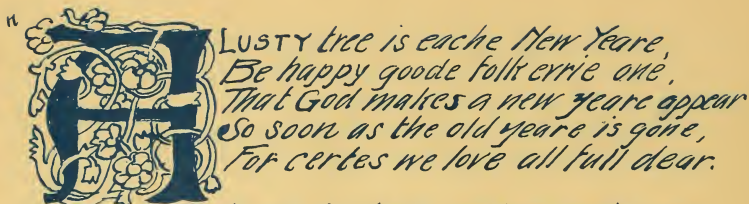 A LUSTY tree is eache New Yeare,
Be happy goode folk evrie one,
That God makes a new yeare appear
So soon as the old yeare is gone,
For certes we love all full dear.